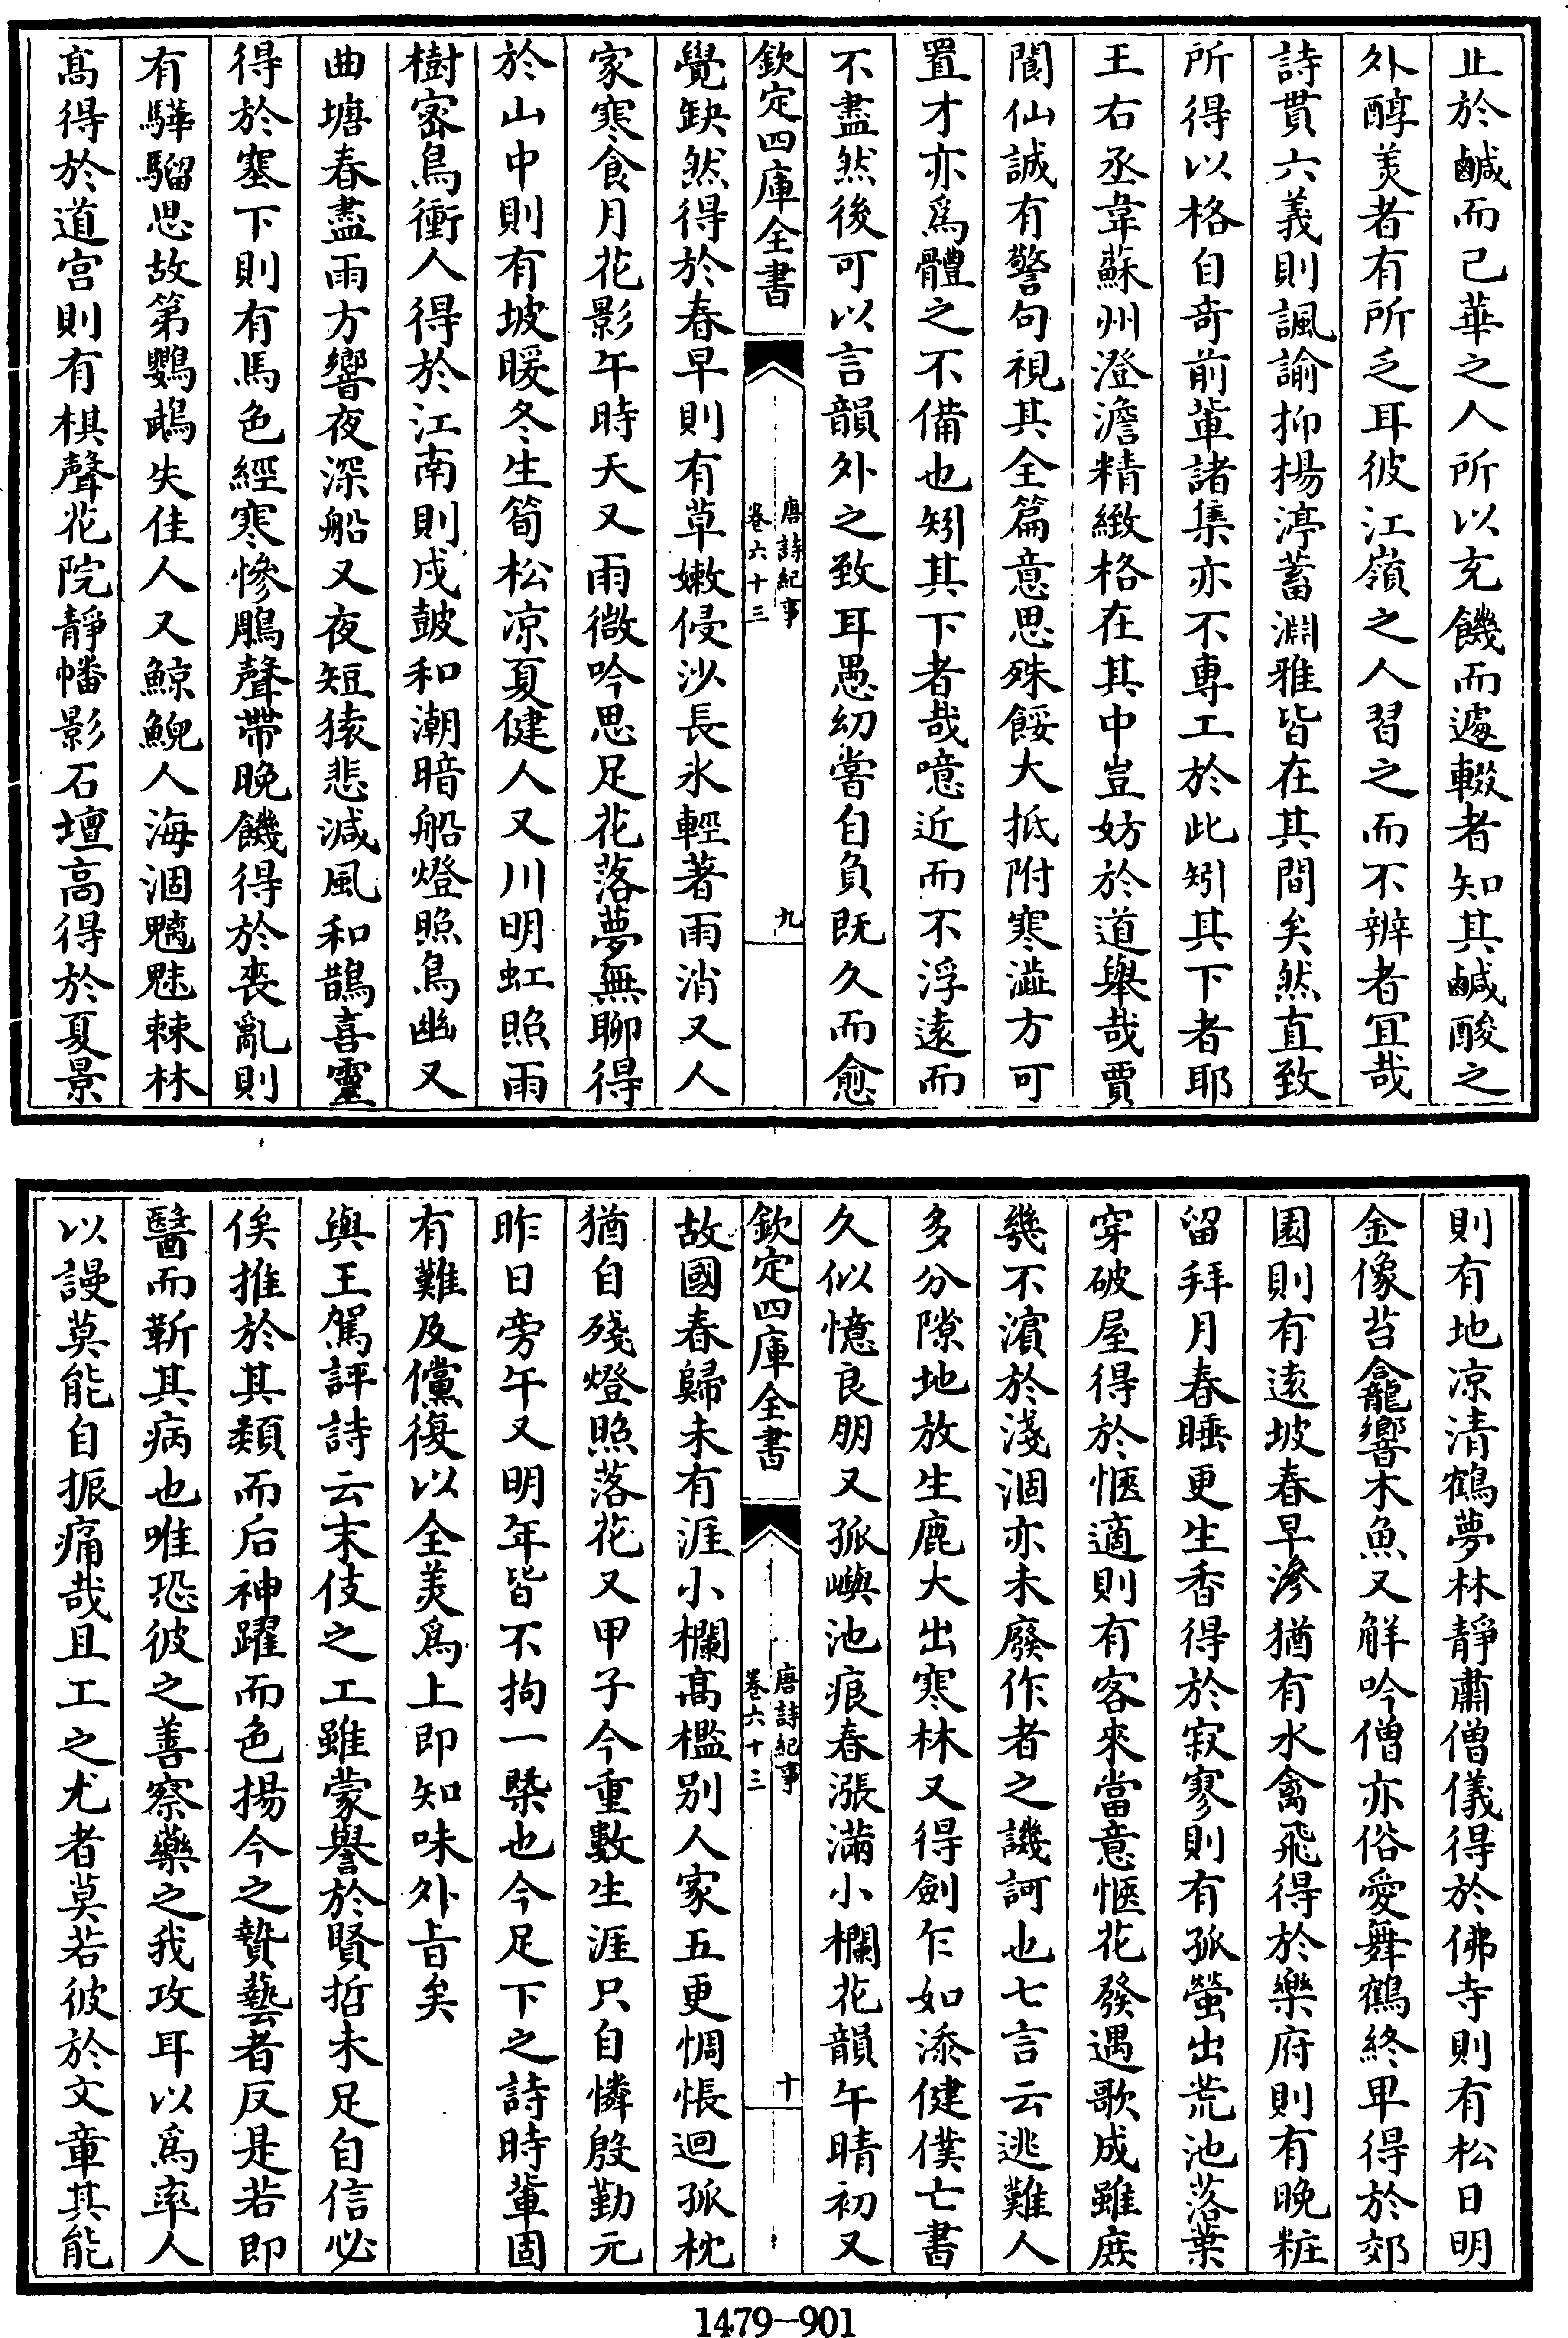 止於鹹而已華之人所以充饑而遽輟者知其鹹酸之
外醇羙者有所乏耳彼江嶺之人習之而不辨者宜哉
詩貫六義則諷諭抑揚渟蓄淵雅皆在其間矣然直致
所得以格自竒前輩諸集亦不專工於此矧其下者耶
王右丞韋蘇州澄澹精緻格在其中豈妨於道舉哉賈
閬仙誠有警句視其全篇意思殊餒大抵附寒澁方可
置才亦為體之不備也矧其下者哉噫近而不浮逺而
不盡然後可以言韻外之致耳愚幼嘗自負既久而愈
欽定四庫全書
唐詩紀事
卷六十三
九
覺缺然得於春早則有草嫩侵沙長氷輕著雨消又人
家寒食月花影午時天又雨微吟思足花落夢無聊得
於山中則有坡暖冬生筍松凉夏健人又川明虹照雨
樹宻鳥衝人得於江南則戍鼓和潮暗船燈照鳥幽又
曲塘春盡雨方響夜深船又夜短猿悲減風和鵲喜靈
得於塞下則有馬色經寒慘鵰聲帶晚饑得於喪亂則
有驊騮思故第鸚鵡失佳人又鯨鯢人海涸魑魅棘林
髙得於道宫則有棋聲花院靜幡影石壇高得於夏景
則有地凉清鶴夢林靜肅僧儀得於佛寺則有松日明
金像苔龕響木魚又解吟僧亦俗愛舞鶴終卑得於郊
園則有逺坡春早滲猶有水禽飛得於樂府則有晚粧
留拜月春睡更生香得於寂寥則有孤螢出荒池落葉
穿破屋得於愜適則有客來當意愜花發遇歌成雖庶
幾不濱於淺涸亦未廢作者之譏訶也七言云逃難人
多分隙地放生鹿大出寒林又得劍乍如添健僕亡書
久似憶良朋又孤嶼池痕春漲滿小欄花韻午晴初又
欽定四庫全書
唐詩紀事
卷六十三
十
故國春歸未有涯小欄髙檻别人家五更惆悵迴孤枕
猶自殘燈照落花又甲子今重數生涯只自憐殷勤元
昨日旁午又明年皆不拘一槩也今足下之詩時輩固
有難及儻復以全羙為上即知味外㫖矣
與王駕評詩云末伎之工雖蒙譽於賢哲未足自信必
俟推於其類而后神躍而色揚今之贄藝者反是若即
醫而靳其病也唯恐彼之善察藥之我攻耳以為率人
以謾莫能自振痛哉且工之尤者莫若彼於文章其能
1479-901